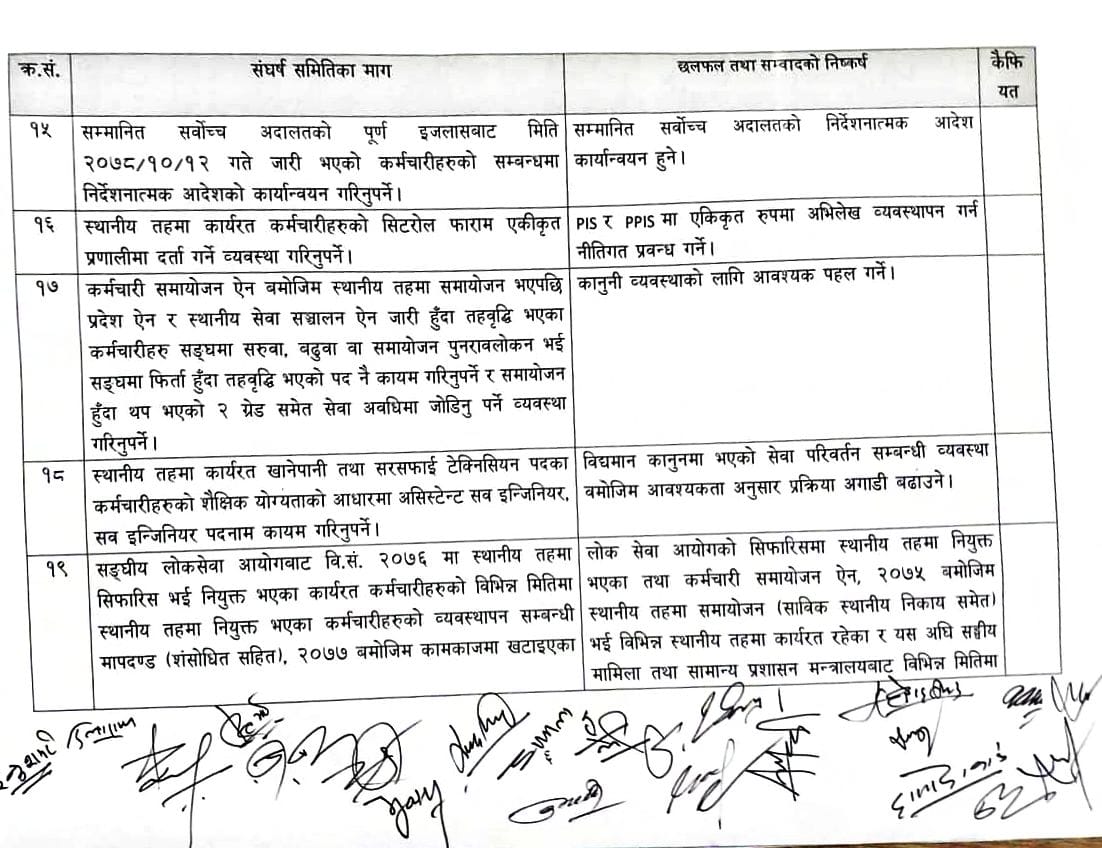 क्र.सं.
संघर्ष समितिका माग
छलफल तथा सम्वादको निष्कर्ष
कैफि
यत
१५
सम्मानित सर्वोच्च अदालतको पूर्ण इजलासबाट मिति
२०७८/१०/१२ गते जारी भएको कर्मचारीहरुको सम्बन्धमा
निर्देशनात्मक आदेशको कार्यान्वयन गरिनुपर्ने।
सम्मानित सर्वोच्च अदालतको निर्देशनात्मक आदेश
कार्यान्वयन हुने।
१६
स्थानीय तहमा कार्यरत कर्मचारीहरुको सिटरोल फाराम एकीकृत
प्रणालीमा दर्ता गर्ने व्यवस्था गरिनुपर्ने।
PIS र PPIS मा एकिकृत रुपमा अभिलेख व्यवस्थापन गर्न
नीतिगत प्रवन्ध गर्ने।
१७
कर्मचारी समायोजन ऐन बमोजिम स्थानीय तहमा समायोजन भएपछि
प्रदेश ऐन र स्थानीय सेवा सञ्चालन ऐन जारी हुँदा तहवृद्धि भएका
कर्मचारीहरु सङ्घमा सरुवा, बढुवा वा समायोजन पुनरावलोकन भई
सङ्घमा फिर्ता हुँदा तहवृद्धि भएको पद नै कायम गरिनुपर्ने र समायोजन
हुँदा थप भएको २ ग्रेड समेत सेवा अवधिमा जोडिनु पर्ने व्यवस्था
गरिनुपर्ने।
कानुनी व्यवस्थाको लागि आवश्यक पहल गर्ने।
१८
स्थानीय तहमा कार्यरत खानेपानी तथा सरसफाई टेक्निसियन पदका
कर्मचारीहरुको शैक्षिक योग्यताको आधारमा असिस्टेन्ट सव इन्जिनियर,
सव इन्जिनियर पदनाम कायम गरिनुपर्ने।
विद्यमान कानुनमा भएको सेवा परिवर्तन सम्बन्धी व्यवस्था
बमोजिम आवश्यकता अनुसार प्रक्रिया अगाडी बढाउने।
१९
सङ्घीय लोकसेवा आयोगवाट वि.सं. २०७६ मा स्थानीय तहमा
सिफारिस भई नियुक्त भएका कार्यरत कर्मचारीहरुको विभिन्न मितिमा
स्थानीय तहमा नियुक्त भएका कर्मचारीहरुको व्यवस्थापन सम्बन्धी
मापदण्ड (शंसोधित सहित), २०७७ बमोजिम कामकाजमा खटाइएका
लोक सेवा आयोगको सिफारिसमा स्थानीय तहमा नियुक्त
भएका तथा कर्मचारी समायोजन ऐन, २०७५ बमोजिम
स्थानीय तहमा समायोजन (साविक स्थानीय निकाय समेत)
भई विभिन्न स्थानीय तहमा कार्यरत रहेका र यस अघि सङ्घीय
मामिला तथा सामान्य प्रशासन मन्त्रालयबाट विभिन्न मितिमा